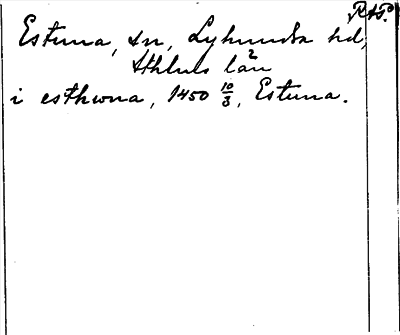 RAP.
Estuna, sn, Lyhundra hd,
Sthlms län
i esthwna, 1450 10/3, Estuna.